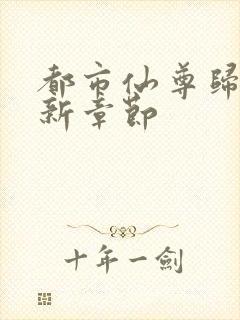 都市仙尊歸
新章節
十年一劍